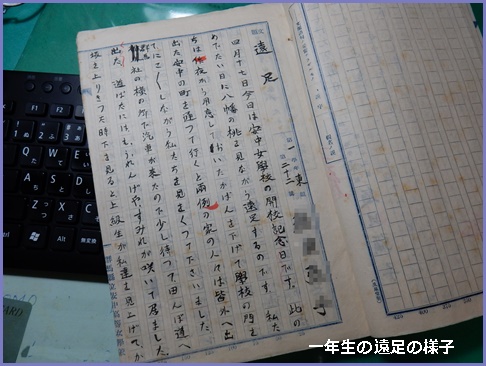 遠足
第一東
二十二
四月十七日今日は安中女學校の開校記念日です。此の
めでたい日に八幡の桃を見ながら遠足するのです。私た
ちは夜から用意して いたかばんを下げて學校の門を
出た安中の町を通つて行くと両側の家の人々は皆外へ出
てにこくしながら私たちを見おくつて下さいました。
社の横の所で汽車が来たので少し待つて田んぼ道へ
出た。道ばたにはもうれんげやすみれが咲いて居ました。
坂を上りきつた時下を見ると上級生が私達を見上げてか
一年生の遠足の様子